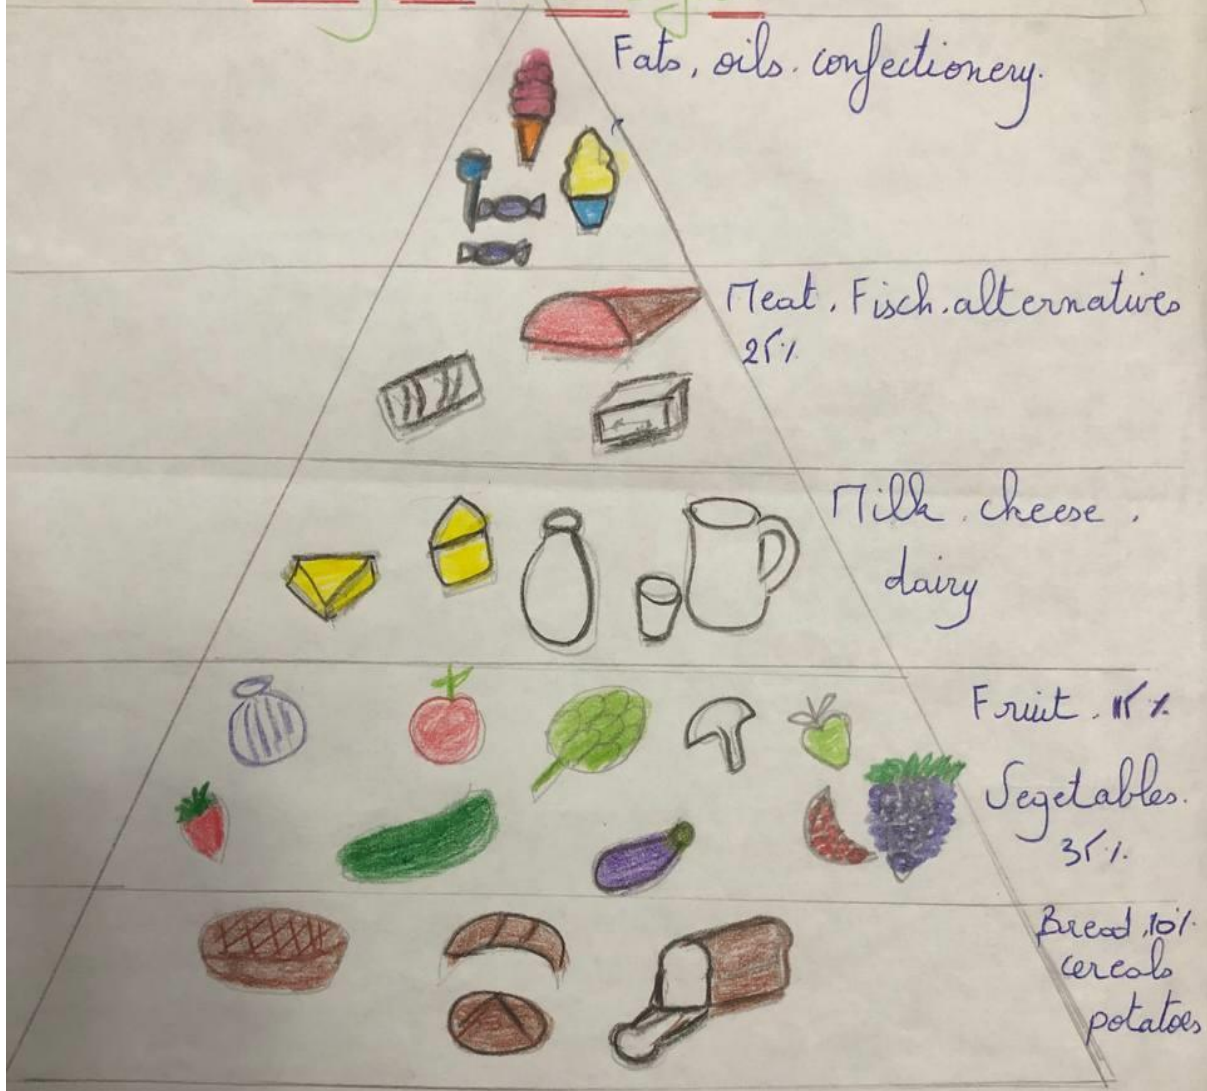 Fats, oils. confectionery.
Meat. Fisch. alternatives
25%
Milk. cheese.
dairy
Fruit. 15%
Vegetables.
35%
Bread. 10%
cereals
potatoes